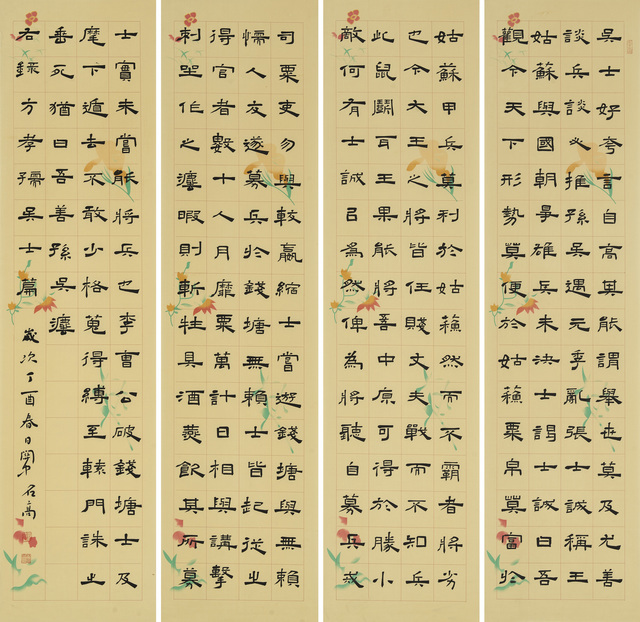 吳士好夸言自高其能謂舉世莫及尤善
談兵談必推孫吳遇元季亂張士誠稱王
姑蘇與國朝爭雄兵未決士謁士誠曰吾
觀今天下形勢莫便於姑蘇粟帛莫富於
姑蘇甲兵莫利於姑蘇然而不霸者將劣
也今大王之將皆任賤丈夫戰而不知兵
此鼠鬭耳王果能將吾中原可得於勝小
敵何有士誠以爲然俾為將聽自募兵戒
司粟吏勿與較贏縮士嘗遊錢塘與無賴
懦人交遂募兵於錢塘無賴士皆起從之
得官者數十人月靡粟萬計日相與講擊
刺坐作之灋暇則斬牲具酒燕飲其所募
士實未嘗能將兵也李曹公破錢塘士及
麾下遁去不敢少格蒐得縛至轅門誅之
垂死猶曰吾善孫吳灋
右錄方孝孺吳士篇 歲次丁酉春日 石高